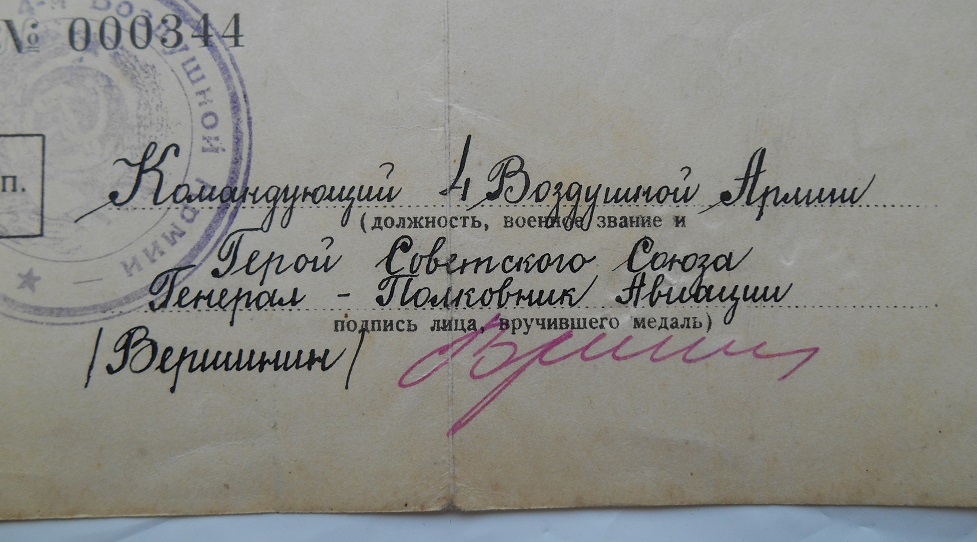 4-й Воздушной Армии
№ 000344
п.
Командующий 4 Воздушной Армии
(должность, военное звание и
Герой Советского Союза
Генерал - Полковник Авиации
подпись лица, вручившего медаль)
/Вершинин/